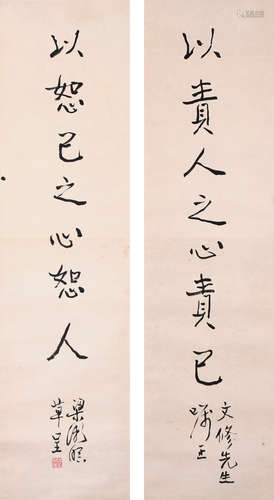 以責人之心責己
文修先生
囑正
以恕己之心恕人
梁
草呈